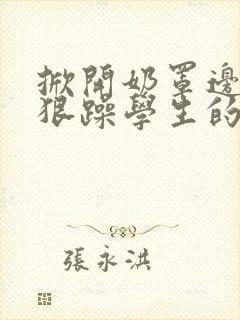 掀開奶罩邊
狠躁學生的
張永洪